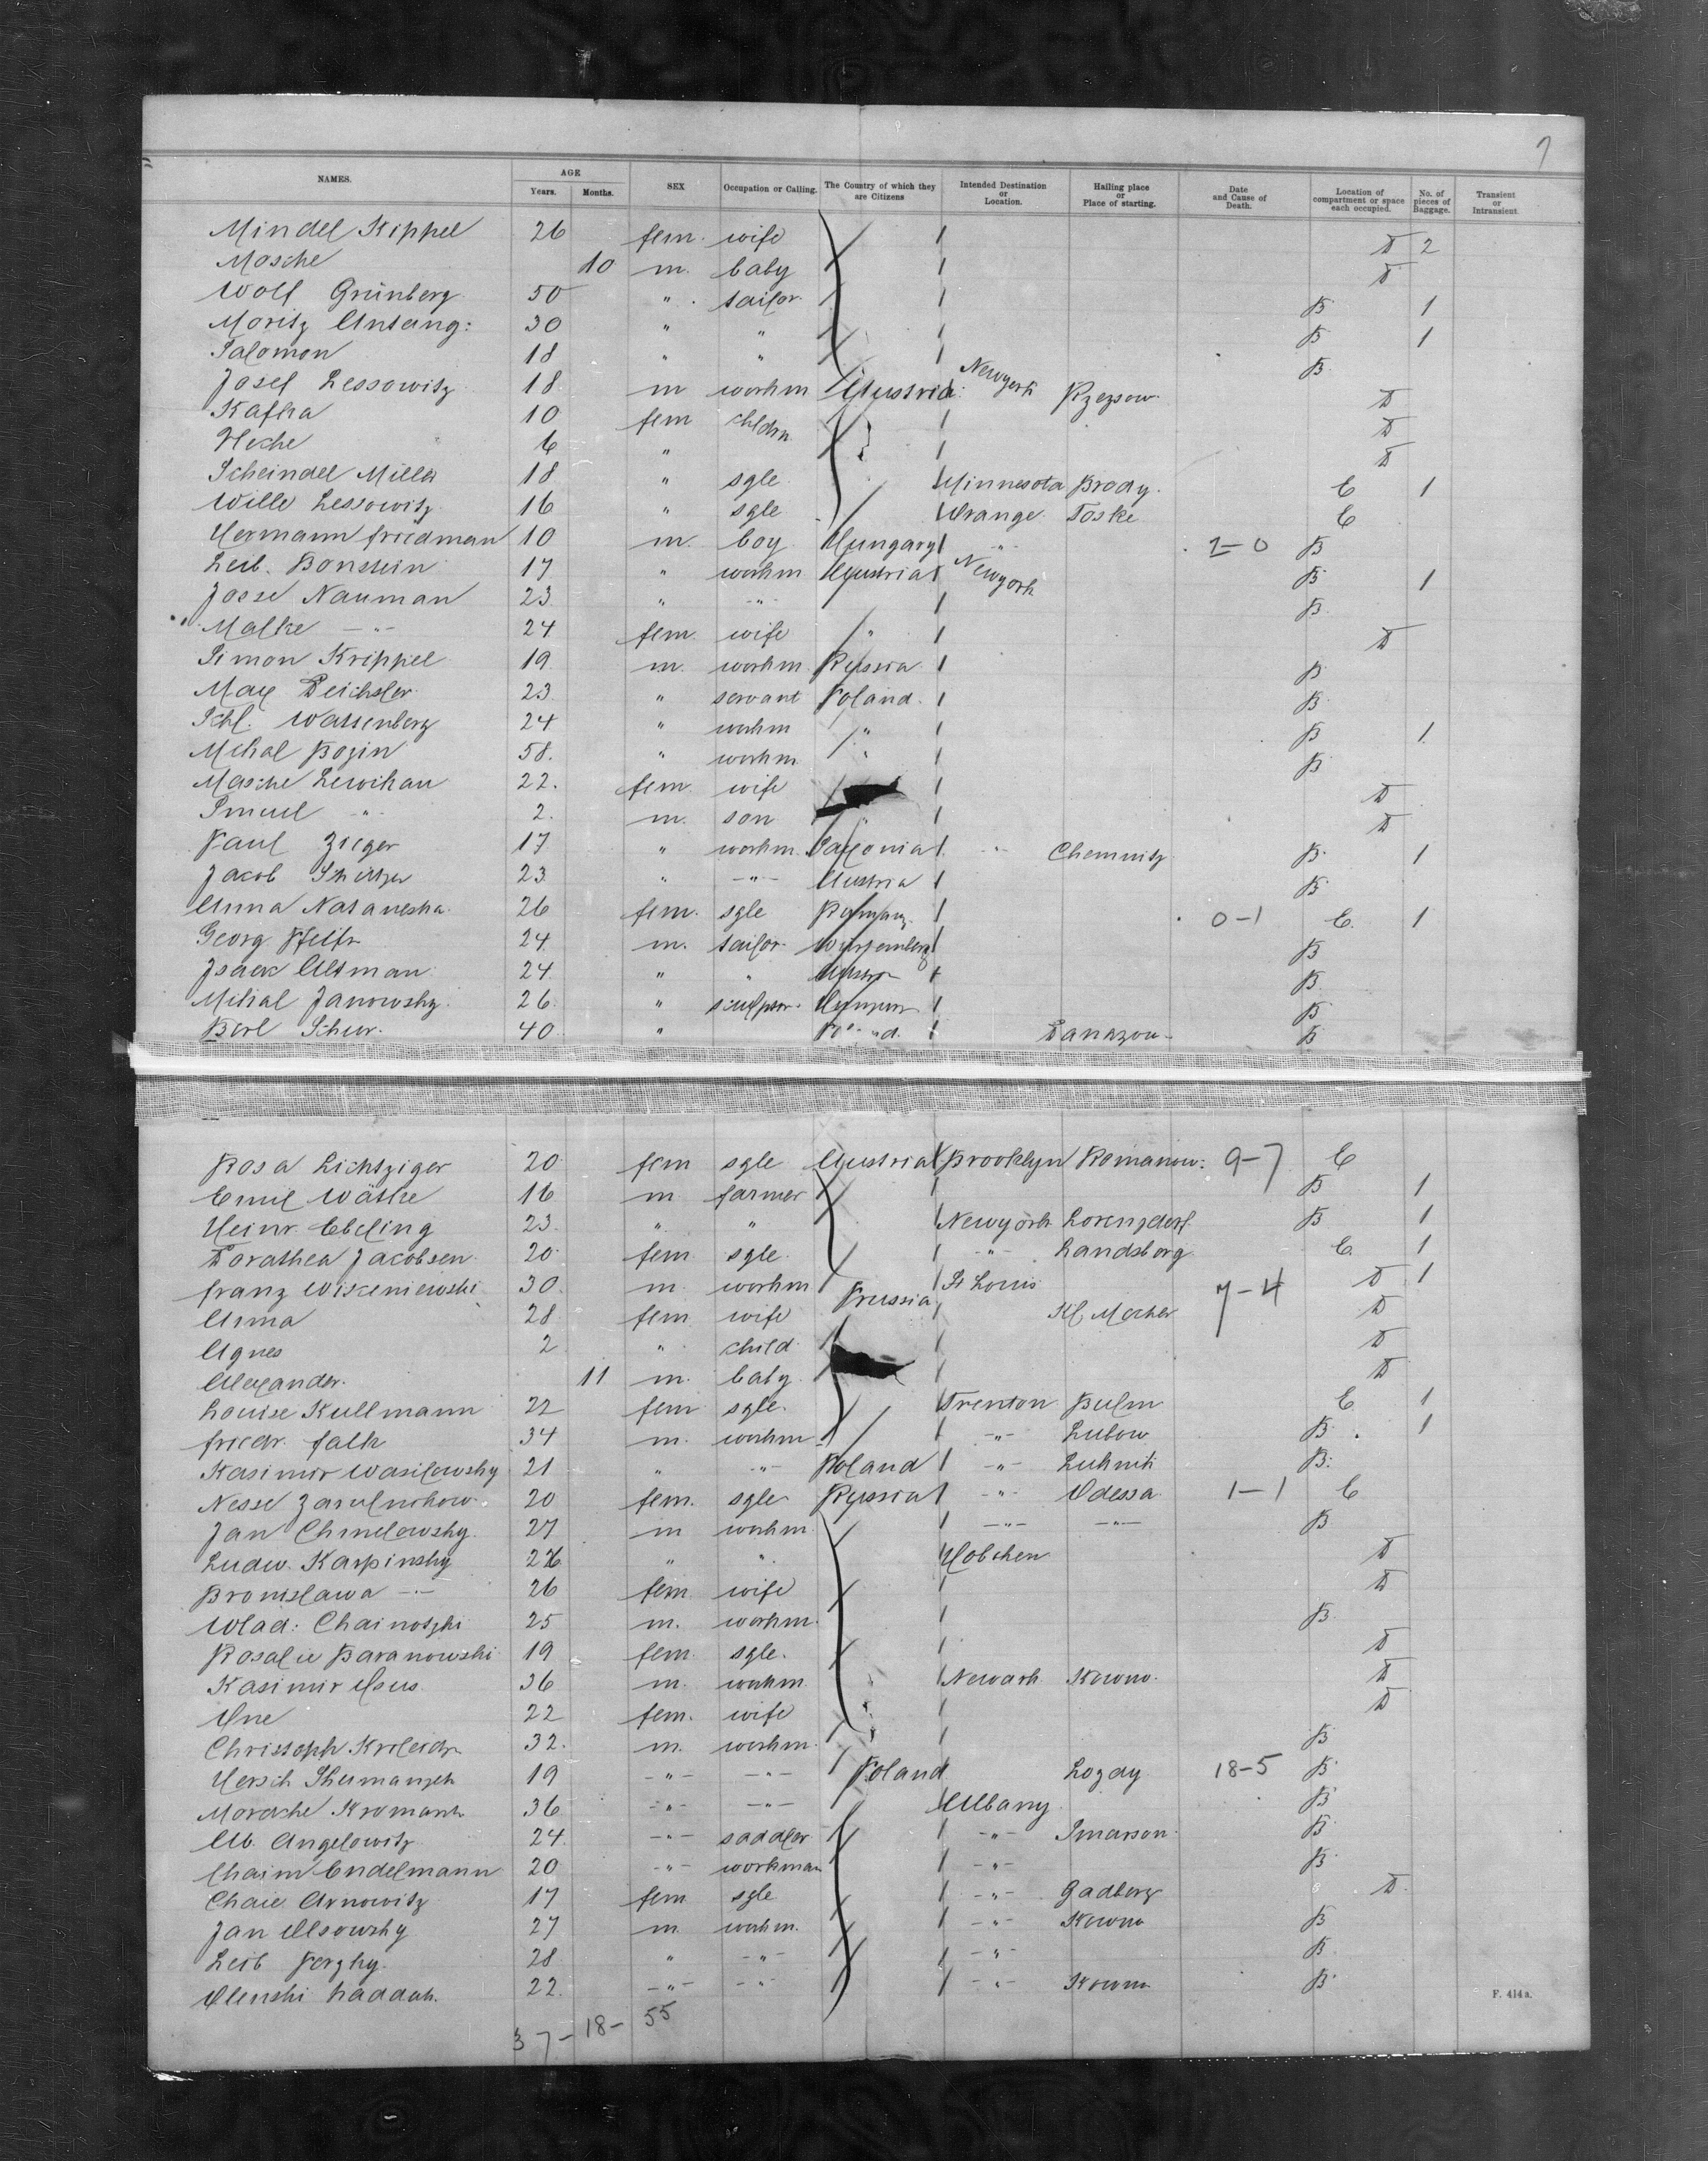 7
NAMES. AGE Years. Months. SEX Occupation or Calling. The Country of which they are Citizens Intended Destination or Location. Hailing place or Place of starting. Date and Cause of Death. Location of compartment or space each occupied. No. of pieces of Baggage. Transient or Intransient
Mindel Kippel 26 fem. wife D 2
Mosche 10 m. baby D
Wolf Grünberg 50 " tailor B 1
Moritz 30 " " B 1
Salomon 18 " " B
Josef Lessowitz 18 m workm Austria Newyork Rzezsow D
Kafka 10 fem chldrn D
Heche 6 " D
Scheindel Miller 18 " sgle Minnesota Brody. E 1
Wille Lessowitz 16 " sgle Orange Toske E
Hermann friedman 10 m. boy Hungary " 2-0 B
Leib. Bonstein 17 " workm Austria Newyork B 1
Josse Nauman 23 " -"- B
Malke -"- 24 fem. wife " D
Simon Krippel 19. m. workm. Russia B
Max Deichsler 23 " servant Poland B
Schl. Wassenberg 24 " workm " B 1.
Mihal Bozin 58. " workm " B
Masche Lewikau 22. fem. wife D
Smuel -"- 2. m. son " D
Paul Zieger 17 " workm. Saxonia -"- Chemnitz B 1
Jacob 23 " -"- Austria B
Anna Nataneska 26 fem. sgle 0-1 E 1
Georg 24 m. tailor Würtemberg B
Isaac Altman 24 " " B
Mihal Janowsky 26 " sculptor B
Berl Schur. 40 " B
Rosa Lichtziger 20 fem sgle Austria Brooklyn Romanow: 9-7 E
Emil Wäthe 16 m farmer B 1
Heinr. Ebeling 23 " " Newyork Lorenzdorf B 1
Dorathea Jacobsen 20 fem sgle. -"- Landsberg E 1
franz Wiszeniewski 30 m. workm St Louis 7-4 D 1
Anna 28 fem wife Prussia D
Agnes 2 " child D
Alexander. 11 m. baby D
Louise Kullmann 22 fem sgle. Trenton Bulm E 1
friedr. falk 34 m. workm -"- Lubow B. 1
Kasimir Wasilowsky 21 " -"- Poland -"- B.
Nesse 20 fem. sgle Russia -"- Odessa 1-1 E
Jan Chmelowsky 27 m workm -"- -"- B
Ludw. Karpinsky 26 " " Hobchen D
Bronislawa -"- 26 fem. wife D
Wlad: Chainotzki 25 m. workm. B
Rosalie Baranowski 19 fem. sgle. D
Kasimir 36 m. workm. Newark Kowno. D
22 fem. wife D
Christoph 32. m. workm. B
Hersch 19 -"- -"- Poland Lozdy 18-5 B
Mordche Kromann 36 -"- -"- Albany B
Ab. Angelowitz 24 -"- saddler -"- B
Chaim Endelmann 20 -"- workman -"- B
Chaie Arnowitz 17 fem sgle -"- Gadberg D
Jan Ossowsky 27 m. workm. -"- Kowno B
Leib 28 " -"- -"- B
22. -"- -"- -"- Kowno B
37- 18- 55
F. 414a.